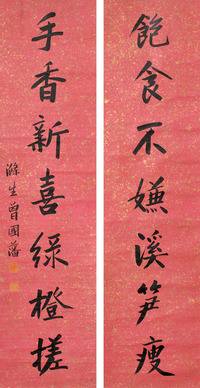 飽食不嫌溪笋瘦
手香新喜綠橙搓
滌生曾國藩